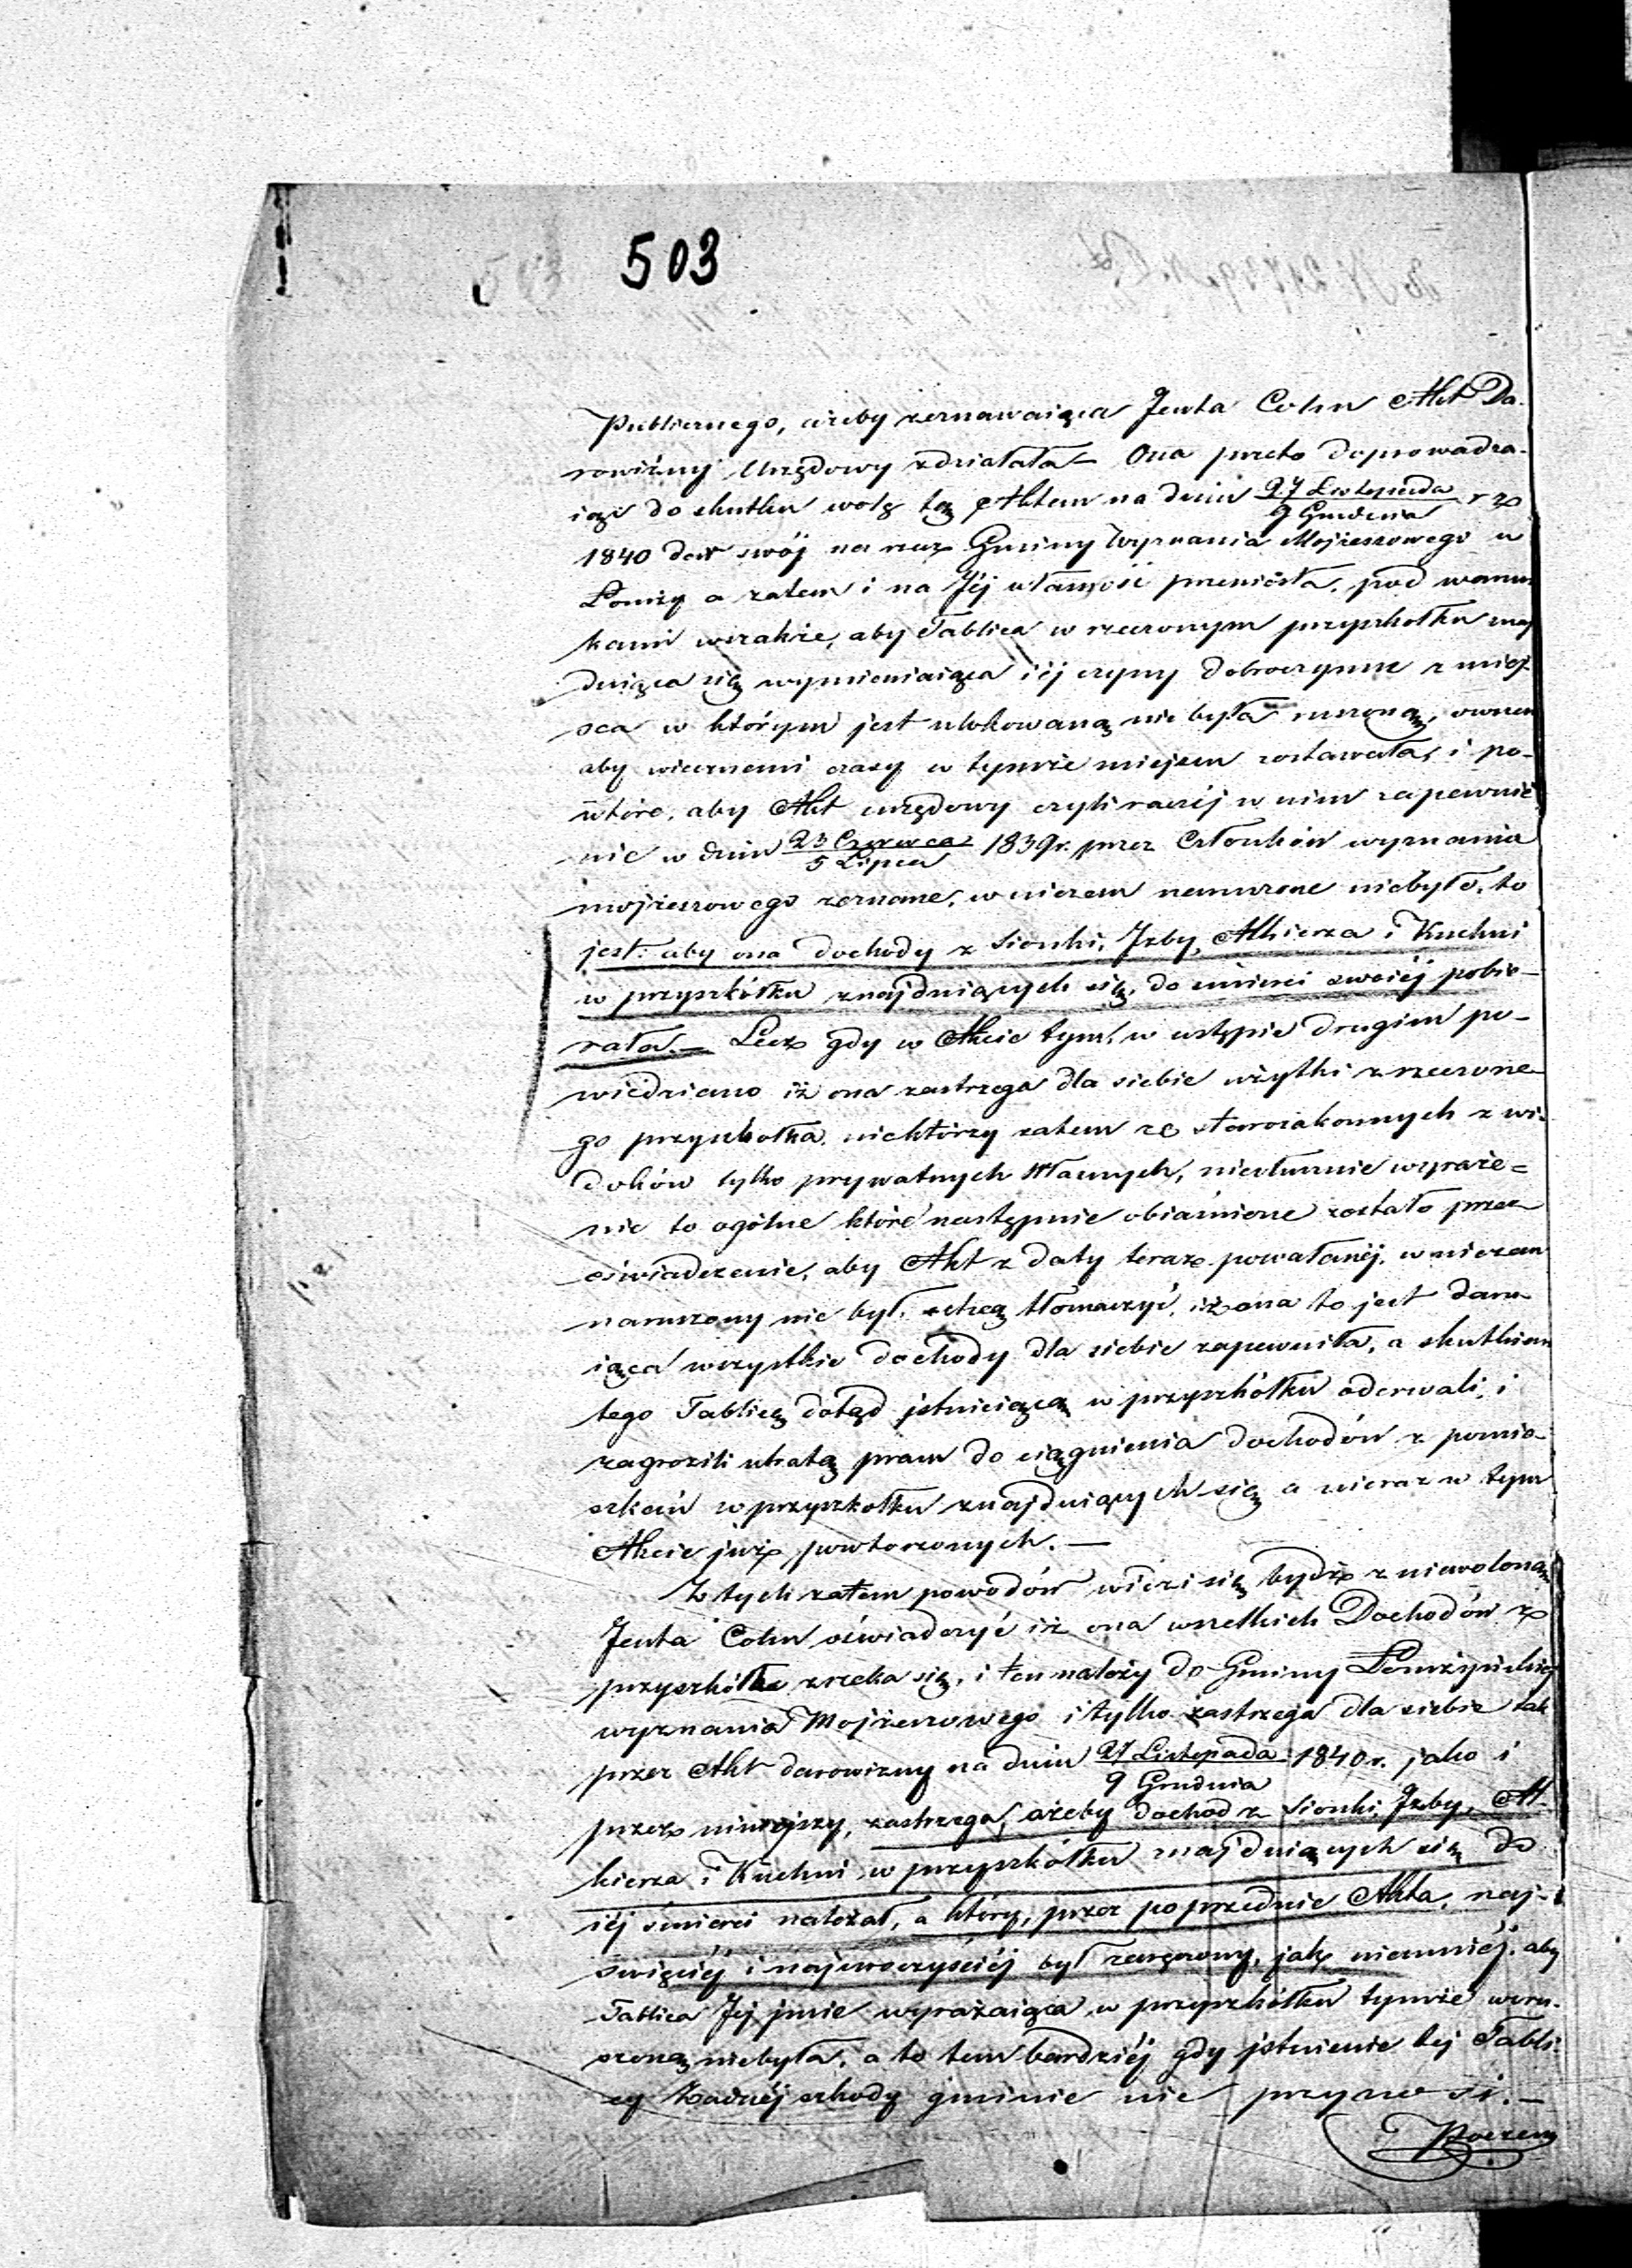 503
Publicznego, ażeby zeznawaiąca Jenta Cohn Akt Da-
rowizny Urzędowy zdziałała – Ona przeto doprowadza-
iąc do skutku wolę tę Aktem na dniu 27 Listopada / 9 Grudnia r z
1840 dar swój na rzecz Gminy Wyznania Mojżeszowego w
Łomży a zatem i na Jéj własność przeniosła, pod warun
kami wszakże, aby Tablica w rzeczonym przyszkołku znaj
duiąca się wymieniaiąca iéj czyny dobroczynne z miej-
sca w którym jest ulokowaną nie była ruszoną, owszem
aby wiecznemi czasy w tymże miejscu zostawała, i po-
wtóre, aby Akt urzędowy czyli raczéj w nim zapewnie
nie w dniu 23 Czerwca / 5 Lipca 1839r. przez Członków wyznania
mojżeszowego zeznane, w niczem naruszone niebyło, to
jest: aby ona dochody z Sionki, Izby, Alkierza i Kuchni
w przyszkółku znajduiących się, do śmierci swoiéj pobie-
rała. – Lecz gdy w Akcie tym, w ustępie drugim po-
wiedziano iż ona zastrzega dla siebie użytki z rzeczone-
go przyszkołka, niektórzy zatem ze starozakonnych z wi-
doków tylko prywatnych własnych, niesłusznie wyraże=
nie to ogólne które następnie obiaśnione zostało przez
oświadczenie, aby Akt z daty teraz powołanéj, w niczem
naruszony nie był, chcą tłomaczyć, iż ona to jest daru
iąca wszystkie dochody dla siebie zapewniła, a skutkiem
tego Tablicę dotąd jstnieiącą w przyszkółku oderwali, i
zagrozili utratą praw do ciągnienia dochodów z pomie-
szkań w przyszkołku znajduiących się a nieraz w tym
Akcie już powtorzonych. –
Z tych zatem powodów widzi się bydź zniewoloną
Jenta Cohn oświadczyć iż ona wszelkich Dochodów z
przyszkółka zrzeka się, i ten należy do Gminy Łomżyńskiej
wyznania Mojżeszowego i tylko zastrzega dla siebie tak
przez Akt darowizny na dniu 27 Listopada / 9 Grudnia 1840 r. jako i
przez ninieyszy, zastrzega, ażeby dochod z Sionki, Izby, Al-
kierza i Kuchni w przyszkółku znajduiących się do
iéj śmierci należał, a który, przez poprzednie Akta, naj-
święciéj i najuroczyściéj był zaręczony, jak niemniéj, aby
Tablica Jej jmie wyrażaiąca w przyszkółku tymże wzru-
szoną niebyła, a to tem bardziéj gdy jstnienie tej Tabli-
cy żadnéj szkody gminie nie przynosi. –
Poczem